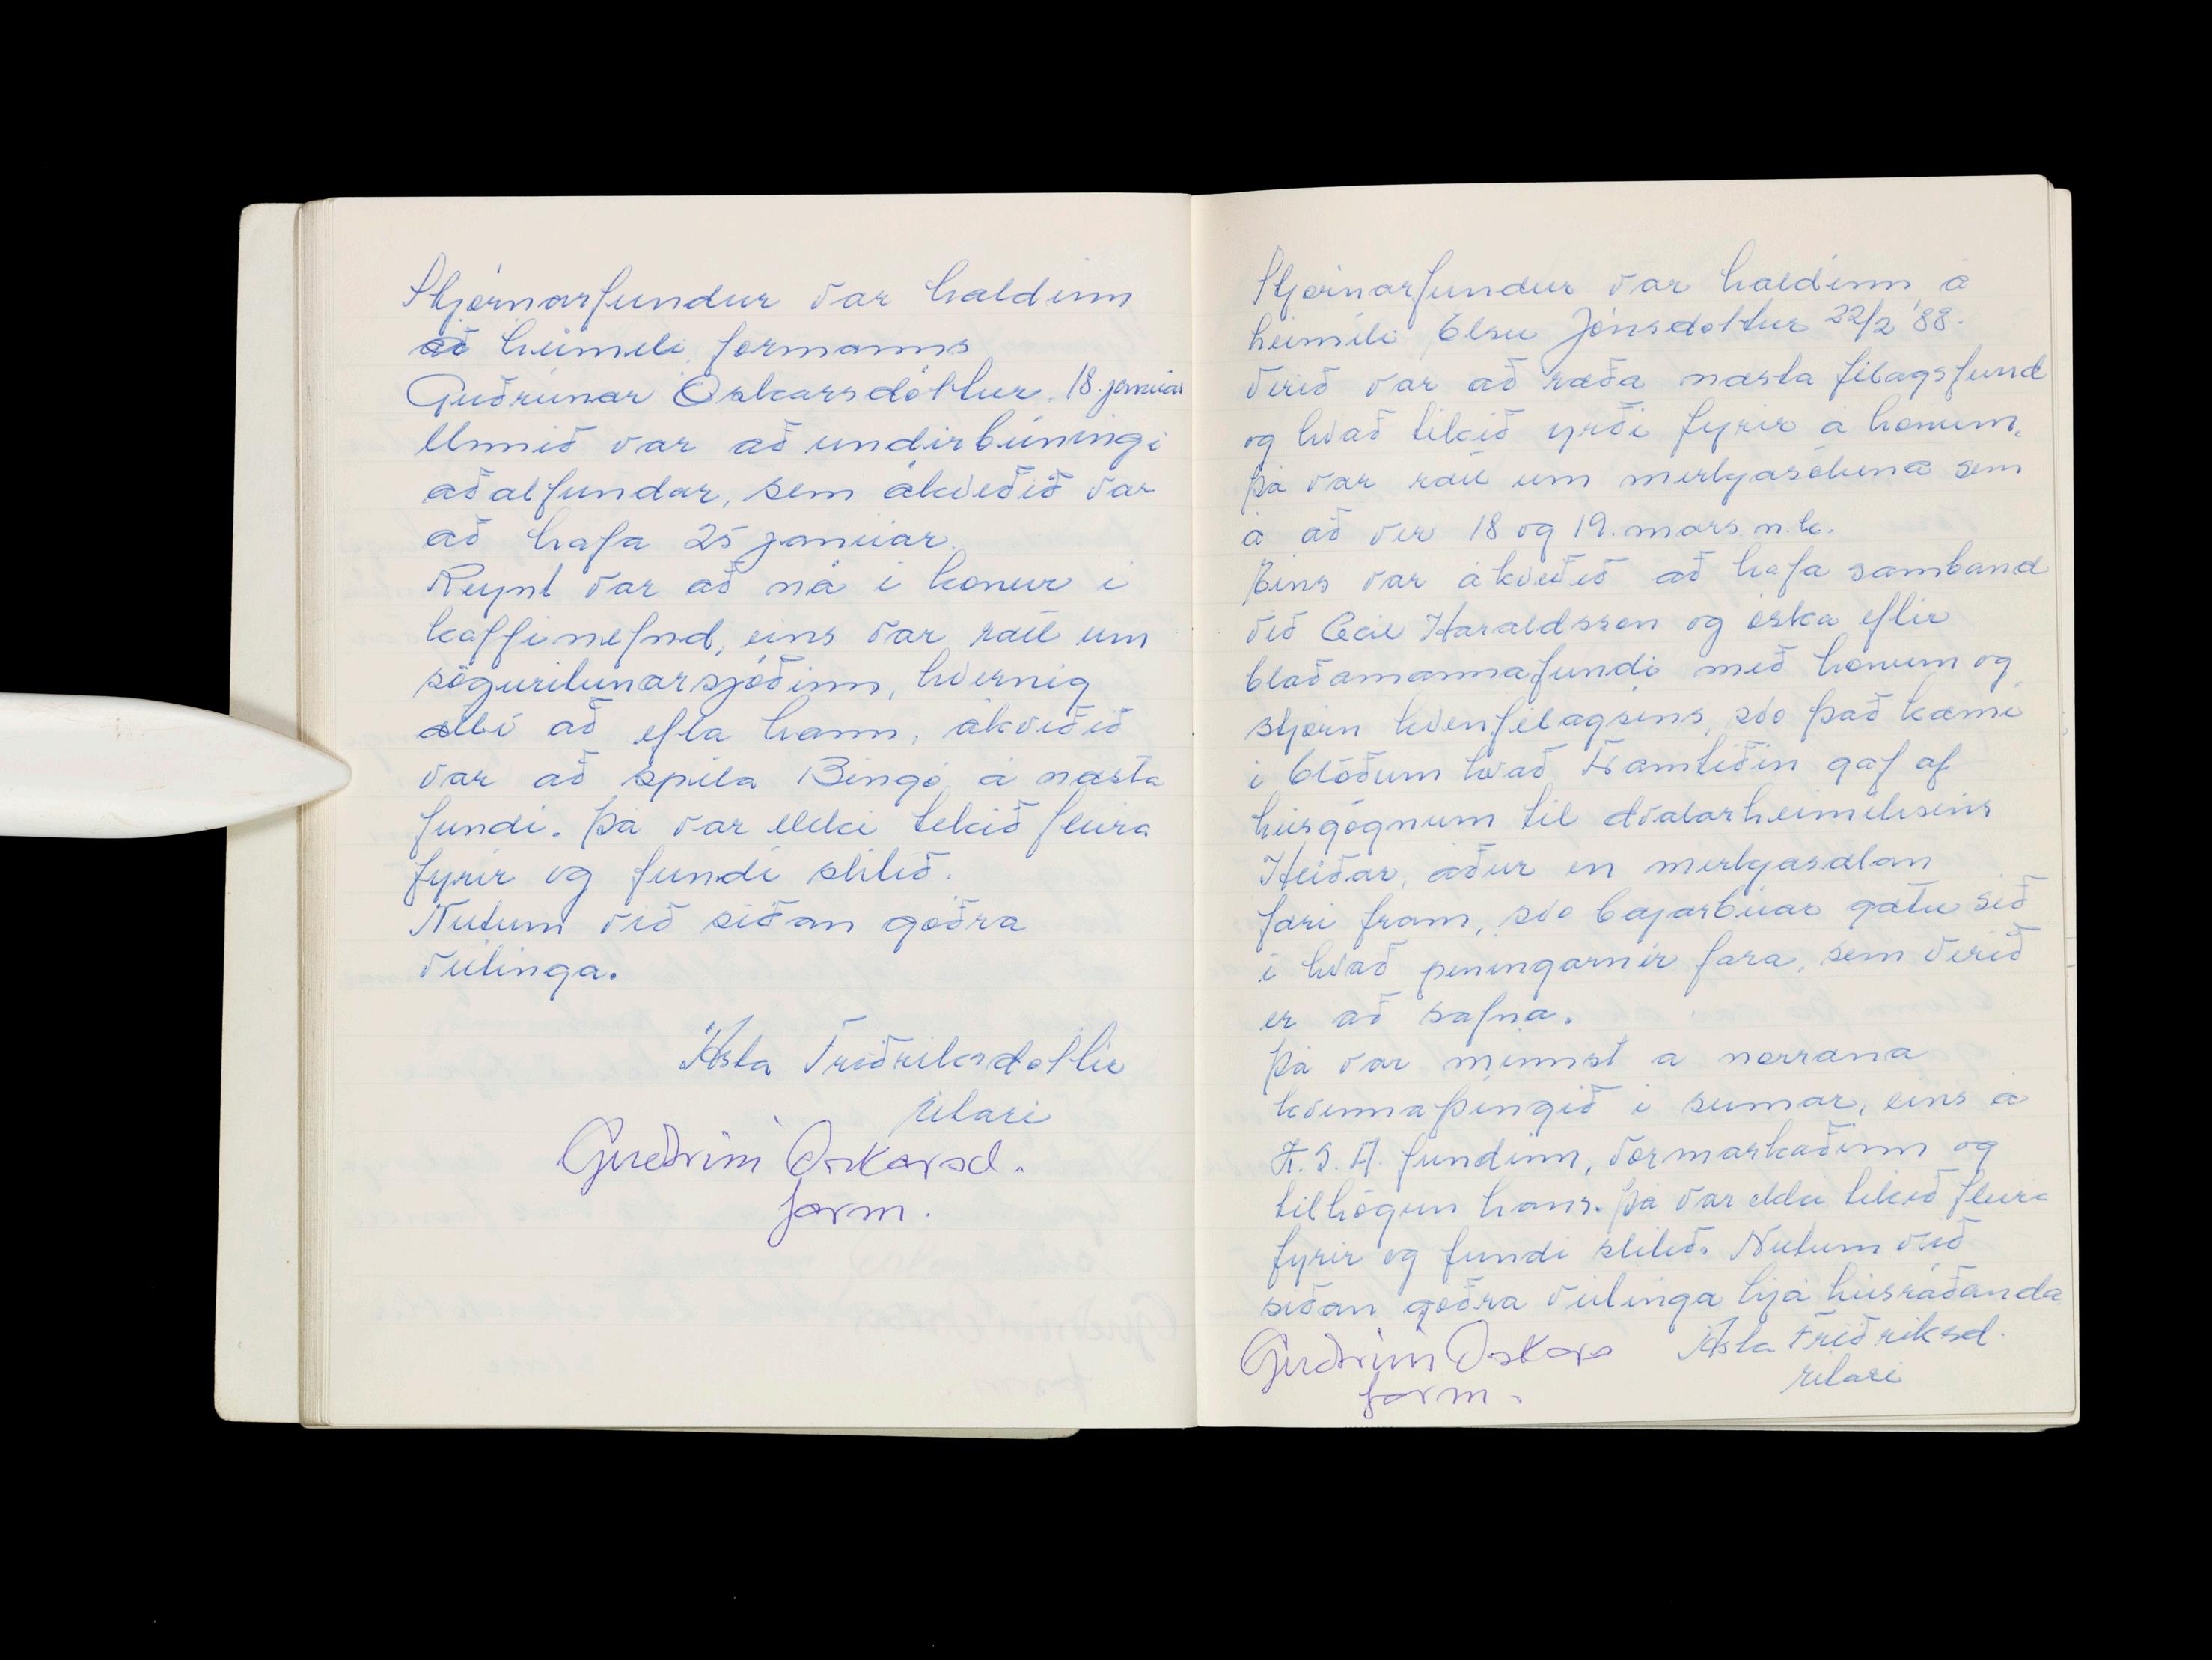 Stjórnarfundur var haldinn
að heimili formanns
Guðrúnar Óskarsdóttur. 18. janúar
Unnið var að undirbúningi
aðalfundar, sem ákveðið var
að hafa 25 janúar.
Reynt var að ná i konur i
kaffinefnd, eins var rætt um
söguritunarsjóðinn, hvernig
ætti að efla hann, ákveðið
var að spila Bingó á næsta
fundi. Þá var ekki tekið fleira
fyrir og fundi slitið.
Nutum við siðan góðra
veitinga.
Ásta Friðriksdóttir
ritari
Guðrún Óskarsd.
form.
Stjórnarfundur var haldinn á
heimili Elsu Jónsdóttur 22/2 '88.
Verið var að ræða næsta félagsfund
og hvað tekið yrði fyrir á honum.
Þá var rætt um merkjasöluna sem
á að ver 18 og 19. mars n.k.
Eins var ákveðið að hafa samband
við Cecil Haraldsson og óska eftir
blaðamannafundi með honum og
stjórn kvenfélagsins, svo það kæmi
i blöðum hvað Framtiðin gaf af
húsgögnum til dvalarheimilisins
Hliðar, áður en merkjasalan
færi fram, svo bæjarbúar gætu séð
i hvað peningarnir fara, sem verið
er að safna.
Þá var minnst á norræna
kvennaþingið i sumar, eins á
K.S.A. fundinn, vormarkaðinn og
tilhögun hans. Þá var ekki tekið fleira
fyrir og fundi slitið. Nutum við
siðan góðra veitinga hjá húsráðanda
Guðrún Óskars
form.
Ásta Friðriksd.
ritari